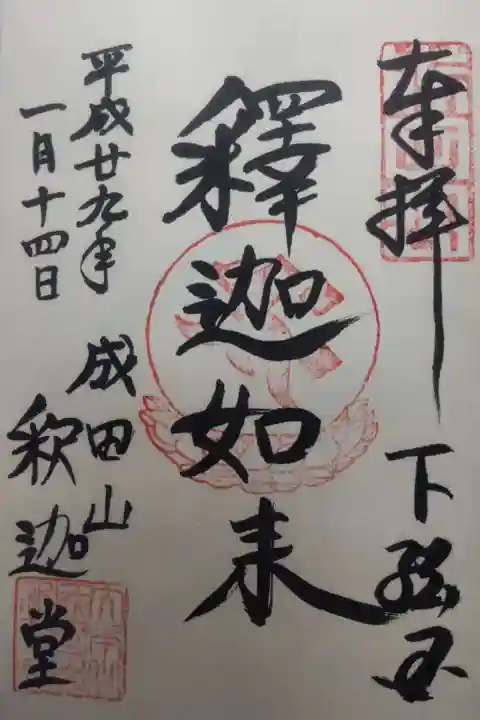 奉拝 下総國
釋迦如来
平成廿九年
一月十四日
成田山
釈迦堂